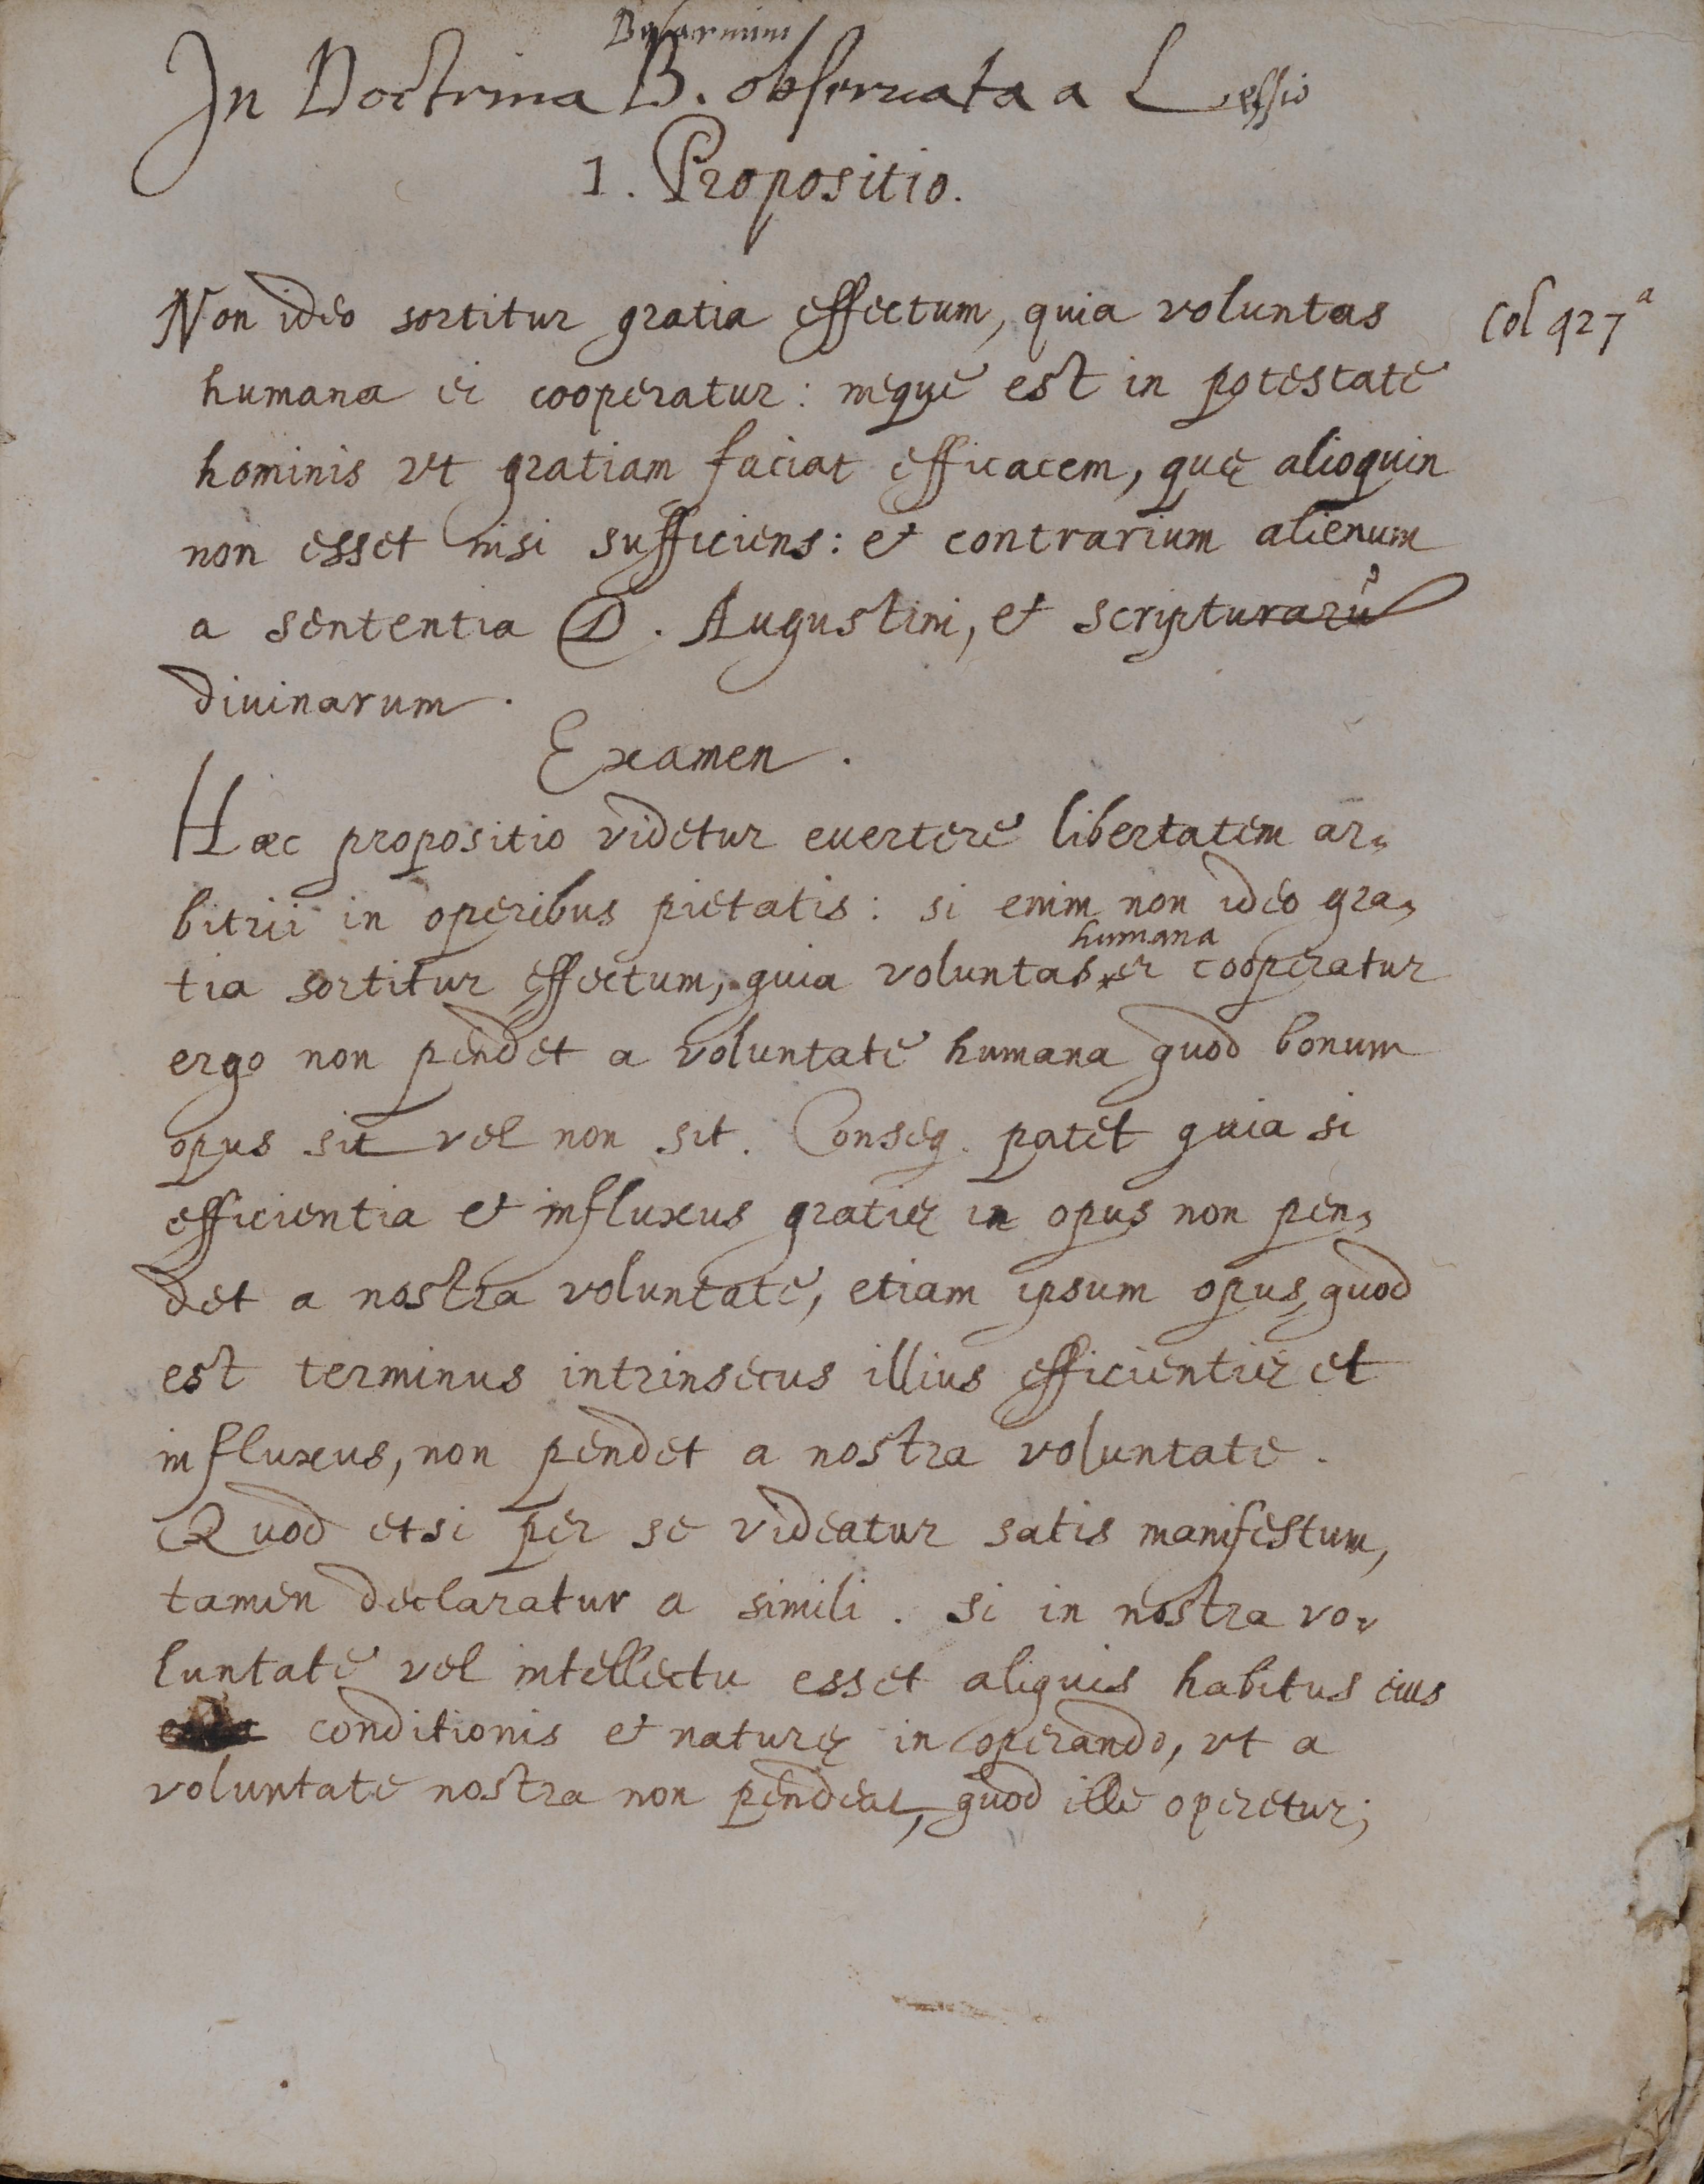 Belarmini
In Doctrina B. obseruata a Lessio
1. Propositio.
Non ideo sortitur gratia effectum, quia voluntas
Col 927ª
humana ei cooperatur: neque est in potestate
hominis vt gratiam faciat efficacem, quę alioquin
non esset nisi sufficiens: et contrarium alienum
a sententia D. Augustini, et scripturarū
diuinarum.
Examen.
Hæc propositio videtur euertere libertatem ar-
bitrii in operibus pietatis: si enim non ideo gra-
humana
tia sortitur effectum, quia voluntas * ei cooperatur
ergo non pendet a voluntate humana quod bonum
opus sit vel non sit. Conseq. patet quia si
efficientia et influxus gratię in opus non pen-
det a nostra voluntate, etiam ipsum opus, quod
est terminus intrinsecus illius efficientię et
influxus, non pendet a nostra voluntate.
Quod etsi per se videatur satis manifestum,
tamen declaratur a simili. si in nostra vo-
luntate vel intellectu esset aliquis habitus eius
conditionis et naturę in operando, vt a
voluntate nostra non pendeat, quod ille operetur;